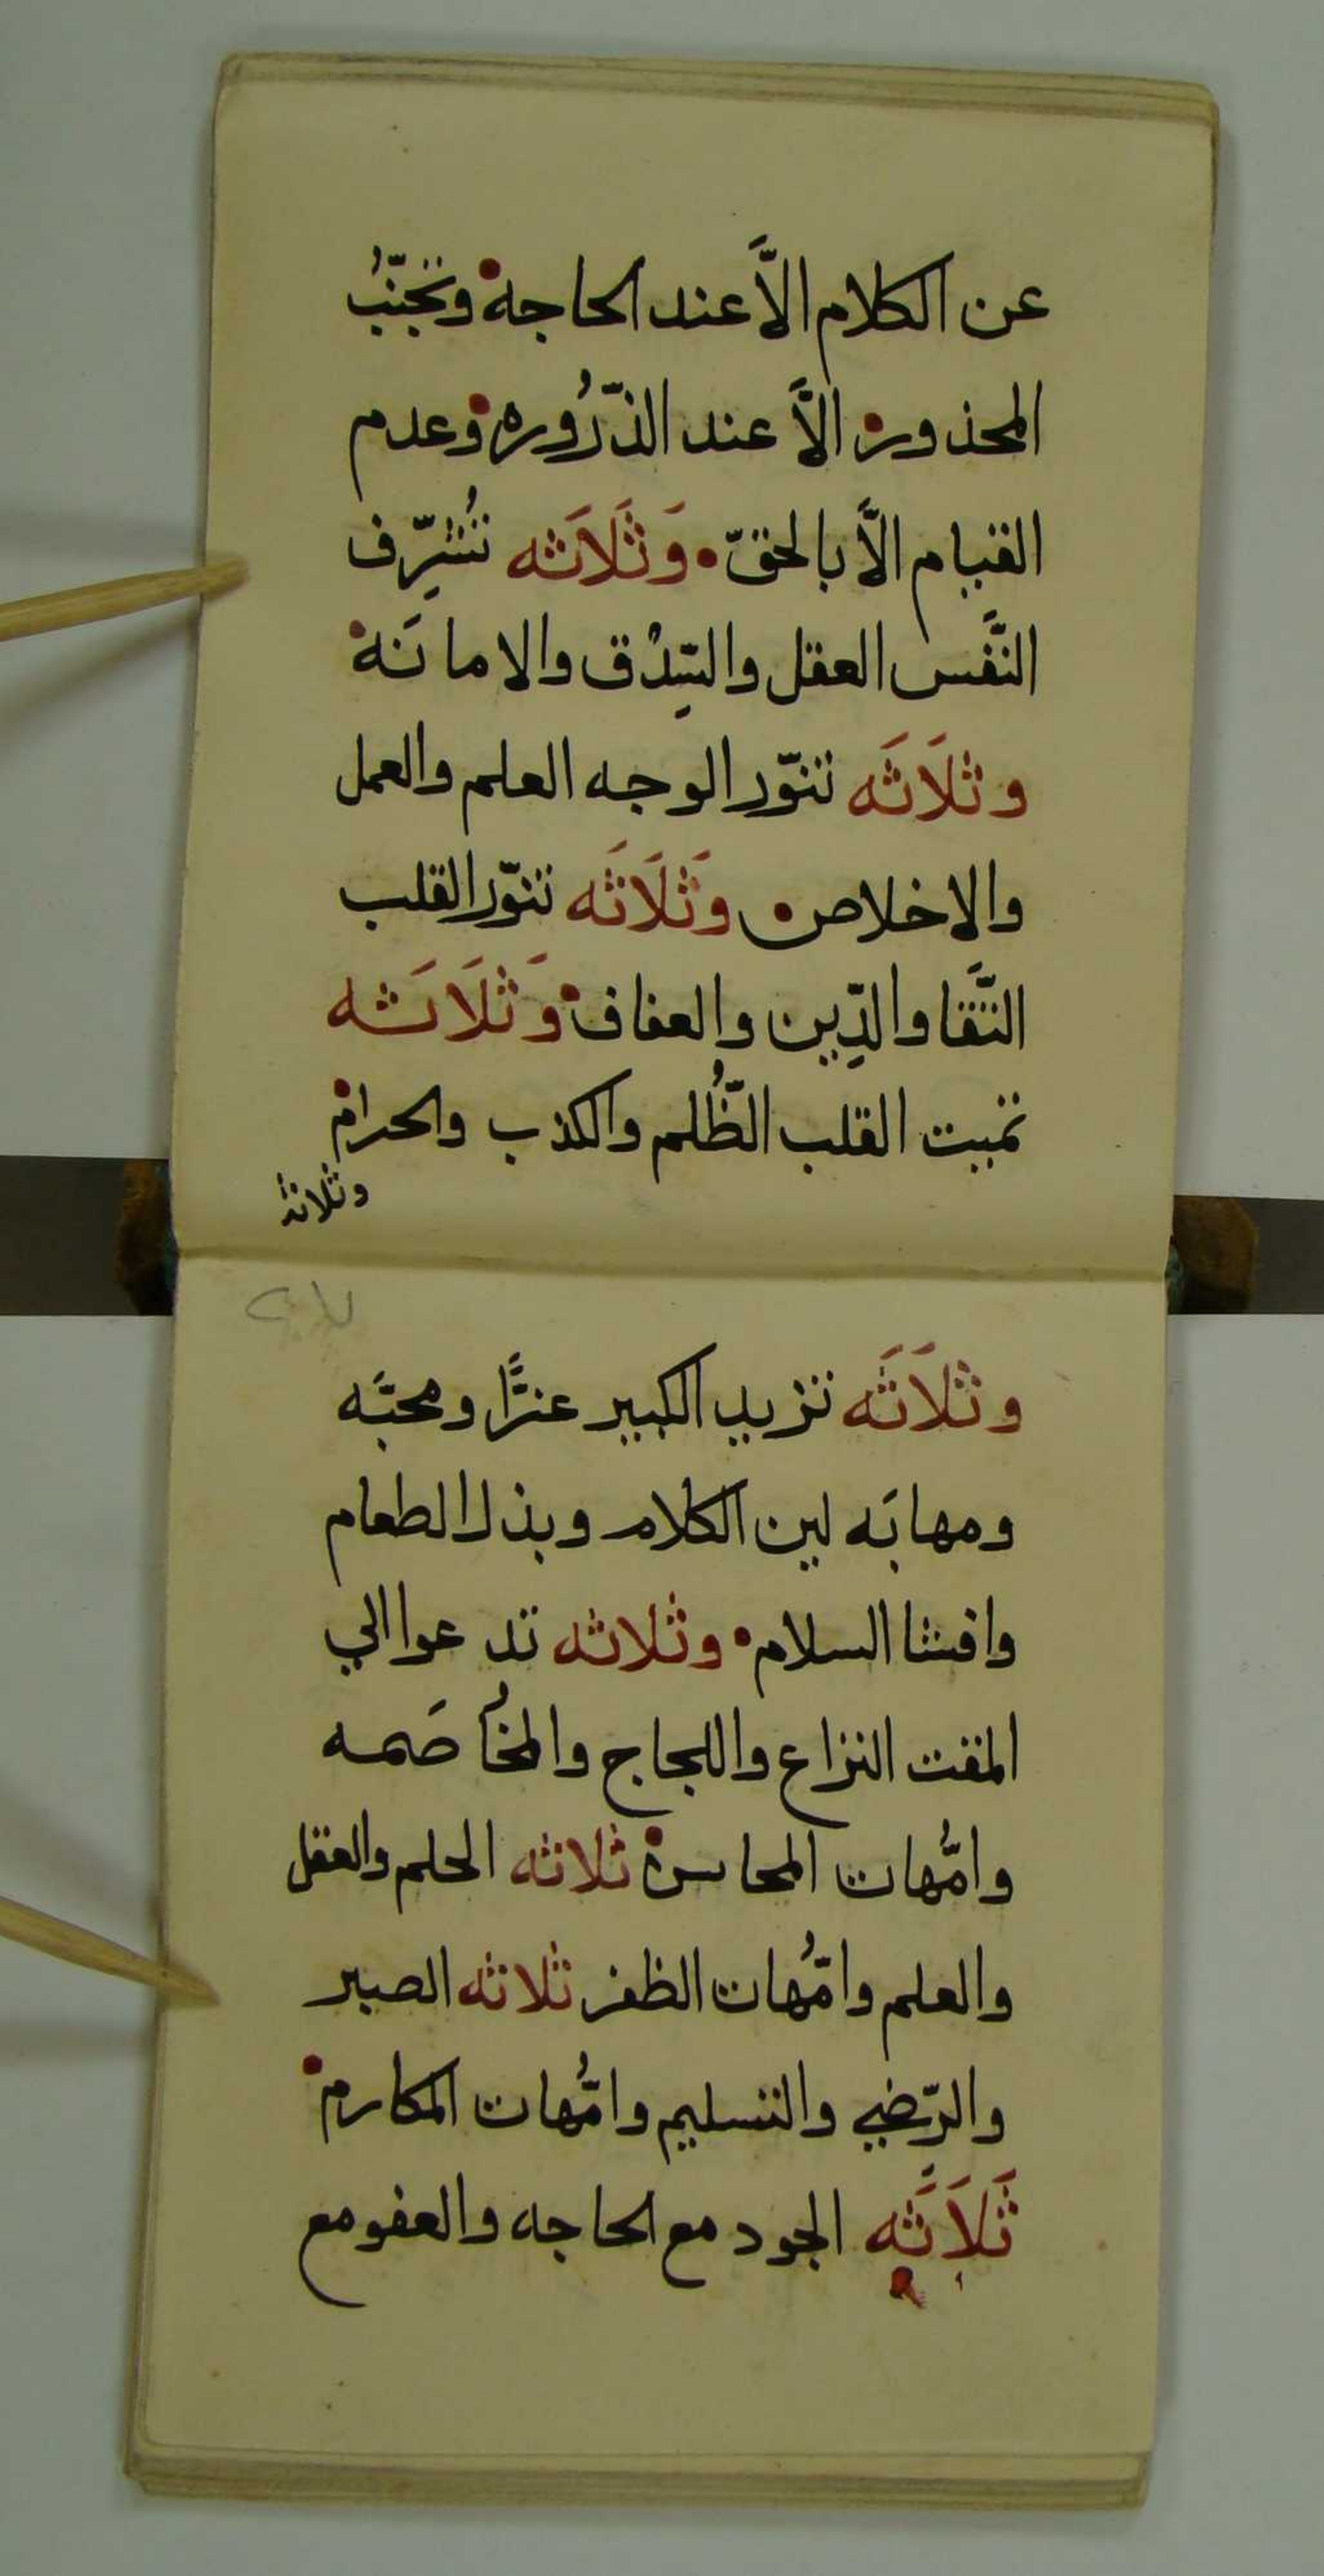 عن الكلام الاَّ عند الحاجه وتجنّبُ
المحذور الاَّ عند الذّرُوره وعدم
القيام الاَّ بالحقّ وَثَلَاَثه تُشرِّف
النَّفس العقل والسِّدْق والامانَه
وثلَاثَه تنوّر الوجه العلم والعمل
والاخلاص وَثَلَاثَه تنوّر القلب
التَّقا والدِّين والعفاف وَثَلَاَثه
تميت القلب الظُّلم والكذب والحرام
وثلاثه
وثلَاثَه تزيد الكبير عزًّا ومحبَّه
ومهابَه لين الكلام وبذل الطعام
وافشا السلام وثلاثه تدعوا الي
المقت النزاع واللجاج والمخُاصَمه
وامُّهات المحاسن ثلاثه الحلم والعقل
والعلم وامُّهات الظفر ثلاثه الصبر
والرِّضي والتسليم وامُّهات المكارم
ثَلَاثَه الجود مع الحاجه والعفو مع